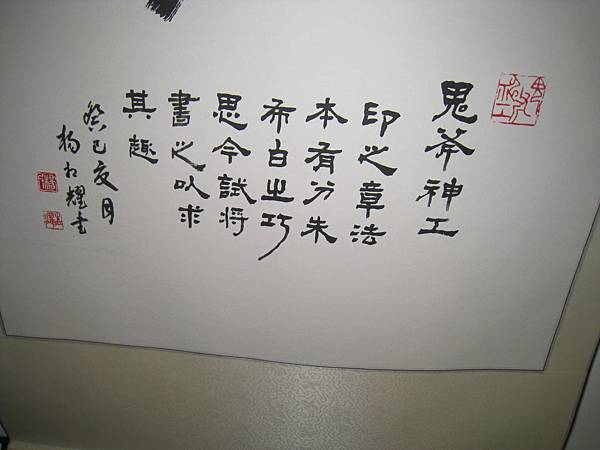 鬼斧神工
印之章法
本有分朱
布白之巧
思今試將
書之以求
其趣
癸巳夏月
楊
耀書